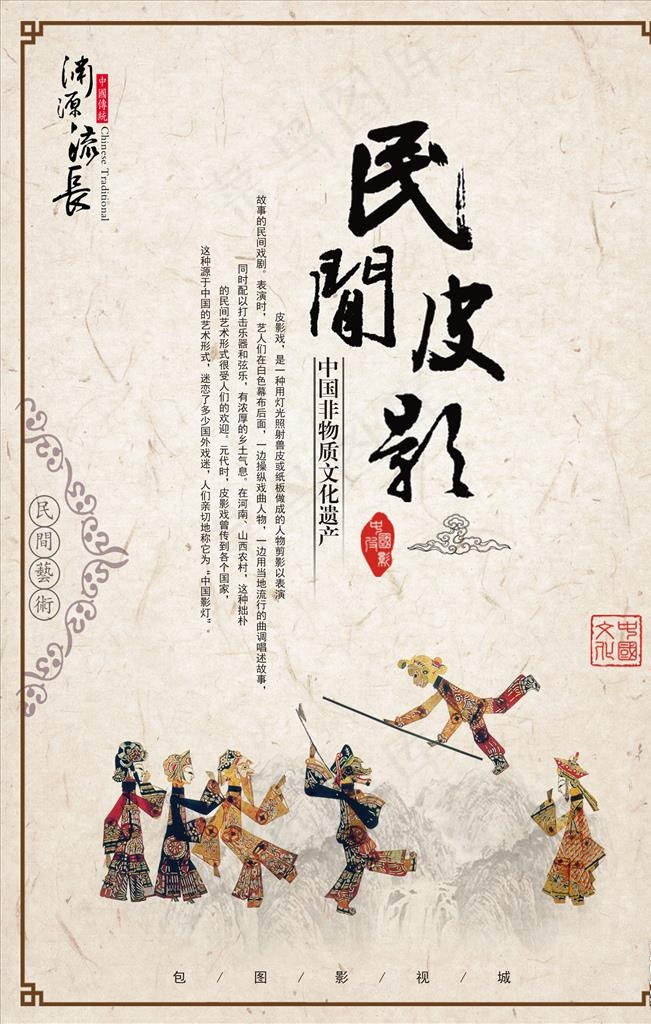 淵源流長
中國傳統
Chinese Traditional
民間皮影
中国非物质文化遗产
皮影戏，是一种用灯光照射兽皮或纸板做成的人物剪影以表演
故事的民间戏剧。表演时，艺人们在白色幕布后面，一边操纵戏曲人物，一边用当地流行的曲调唱述故事，
同时配以打击乐器和弦乐，有浓厚的乡土气息。在河南、山西农村，这种拙朴
的民间艺术形式很受人们的欢迎。元代时，皮影戏曾传到各个国家，
这种源于中国的艺术形式，迷恋了多少国外戏迷，人们亲切地称它为“中国影灯”。
民間藝術
中國文化
包/图/影/视/城